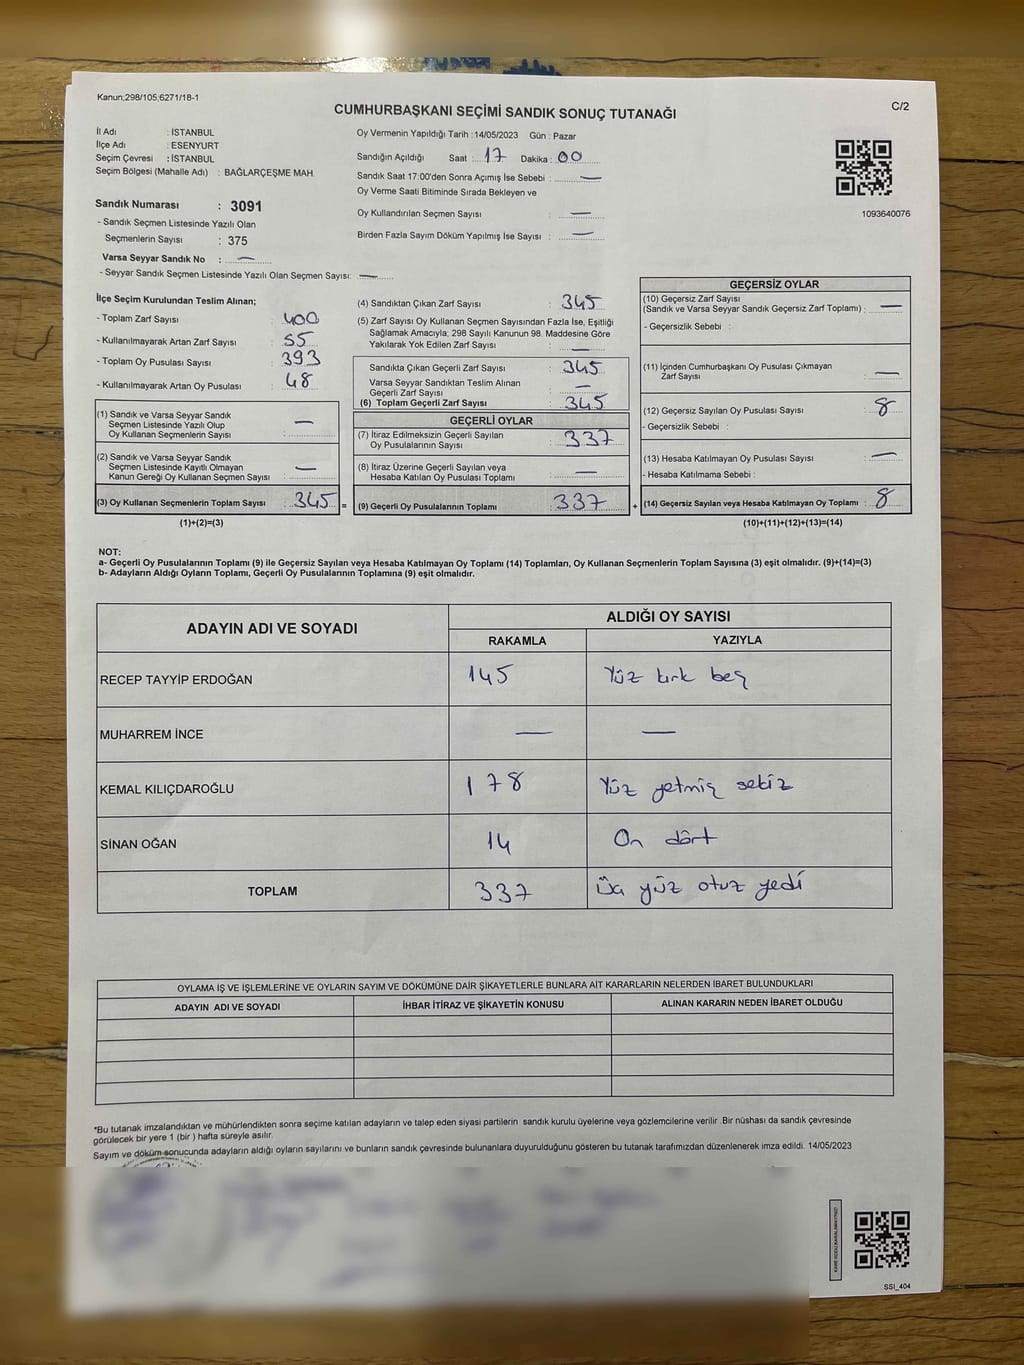 Kanun;298/105,6271/18-1
CUMHURBAŞKANI SEÇİMİ SANDIK SONUÇ TUTANAĞI
C/2
İl Adı : İSTANBUL
İlçe Adı : ESENYURT
Seçim Çevresi : İSTANBUL
Seçim Bölgesi (Mahalle Adı) : BAĞLARÇEŞME MAH.
Sandık Numarası : 3091
- Sandık Seçmen Listesinde Yazılı Olan
Seçmenlerin Sayısı : 375
Varsa Seyyar Sandık No : —
- Seyyar Sandık Seçmen Listesinde Yazılı Olan Seçmen Sayısı: —
Oy Vermenin Yapıldığı Tarih :14/05/2023 Gün : Pazar
Sandığın Açıldığı Saat : 17 Dakika : 00
Sandık Saat 17:00'den Sonra Açımış İse Sebebi : —
Oy Verme Saati Bitiminde Sırada Bekleyen ve
Oy Kullandırılan Seçmen Sayısı : —
Birden Fazla Sayım Döküm Yapılmış İse Sayısı : —
1093640076
İlçe Seçim Kurulundan Teslim Alınan;
- Toplam Zarf Sayısı : 400
- Kullanılmayarak Artan Zarf Sayısı : 55
- Toplam Oy Pusulası Sayısı : 393
- Kullanılmayarak Artan Oy Pusulası : 48
(1) Sandık ve Varsa Seyyar Sandık
Seçmen Listesinde Yazılı Olup
Oy Kullanan Seçmenlerin Sayısı : —
(2) Sandık ve Varsa Seyyar Sandık
Seçmen Listesinde Kayıtlı Olmayan
Kanun Gereği Oy Kullanan Seçmen Sayısı : —
(3) Oy Kullanan Seçmenlerin Toplam Sayısı : 345 =
(1)+(2)=(3)
(4) Sandıktan Çıkan Zarf Sayısı : 345
(5) Zarf Sayısı Oy Kullanan Seçmen Sayısından Fazla İse, Eşitliği
Sağlamak Amacıyla; 298 Sayılı Kanunun 98. Maddesine Göre
Yakılarak Yok Edilen Zarf Sayısı : —
Sandıkta Çıkan Geçerli Zarf Sayısı : 345
Varsa Seyyar Sandıktan Teslim Alınan
Geçerli Zarf Sayısı : —
(6) Toplam Geçerli Zarf Sayısı : 345
GEÇERLİ OYLAR
(7) İtiraz Edilmeksizin Geçerli Sayılan
Oy Pusulalarının Sayısı : 337
(8) İtiraz Üzerine Geçerli Sayılan veya
Hesaba Katılan Oy Pusulası Toplamı : —
(9) Geçerli Oy Pusulalarının Toplamı : 337 +
GEÇERSİZ OYLAR
(10) Geçersiz Zarf Sayısı
(Sandık ve Varsa Seyyar Sandık Geçersiz Zarf Toplamı) : —
- Geçersizlik Sebebi :
(11) İçinden Cumhurbaşkanı Oy Pusulası Çıkmayan
Zarf Sayısı : —
(12) Geçersiz Sayılan Oy Pusulası Sayısı : 8
- Geçersizlik Sebebi :
(13) Hesaba Katılmayan Oy Pusulası Sayısı : —
- Hesaba Katılmama Sebebi :
(14) Geçersiz Sayılan veya Hesaba Katılmayan Oy Toplamı : 8
(10)+(11)+(12)+(13)=(14)
NOT:
a- Geçerli Oy Pusulalarının Toplamı (9) ile Geçersiz Sayılan veya Hesaba Katılmayan Oy Toplamı (14) Toplamları, Oy Kullanan Seçmenlerin Toplam Sayısına (3) eşit olmalıdır. (9)+(14)=(3)
b- Adayların Aldığı Oyların Toplamı, Geçerli Oy Pusulalarının Toplamına (9) eşit olmalıdır.
ADAYIN ADI VE SOYADI
ALDIĞI OY SAYISI
RAKAMLA YAZIYLA
RECEP TAYYİP ERDOĞAN 145 Yüz kırk beş
MUHARREM İNCE — —
KEMAL KILIÇDAROĞLU 178 Yüz yetmiş sekiz
SİNAN OĞAN 14 On dört
TOPLAM 337 Üç yüz otuz yedi
OYLAMA İŞ VE İŞLEMLERİNE VE OYLARIN SAYIM VE DÖKÜMÜNE DAİR ŞİKAYETLERLE BUNLARA AİT KARARLARIN NELERDEN İBARET BULUNDUKLARI
ADAYIN ADI VE SOYADI İHBAR İTİRAZ VE ŞİKAYETİN KONUSU ALINAN KARARIN NEDEN İBARET OLDUĞU
*Bu tutanak imzalandıktan ve mühürlendikten sonra seçime katılan adayların ve talep eden siyasi partilerin sandık kurulu üyelerine veya gözlemcilerine verilir. Bir nüshası da sandık çevresinde
görülecek bir yere 1 (bir ) hafta süreyle asılır.
Sayım ve döküm sonucunda adayların aldığı oyların sayılarını ve bunların sandık çevresinde bulunanlara duyurulduğunu gösteren bu tutanak tarafımızdan düzenlenerek imza edildi. 14/05/2023
SSI_404